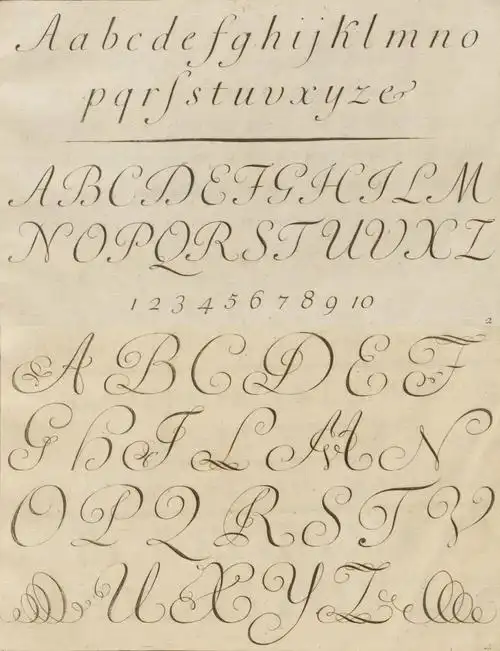 A a b c d e f g h i j k l m n o
p q r ſ s t u v x y z &
A B C D E F G H I L M
N O P Q R S T U V X Z
1 2 3 4 5 6 7 8 9 10
2
A B C D E F
G H I L M N
O P Q R S T V
U X Y Z